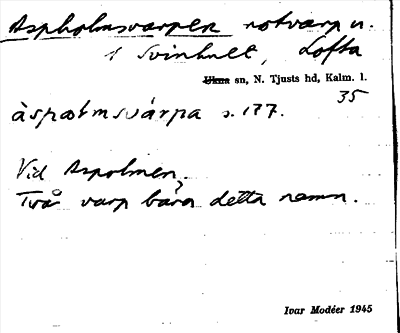 Aspholmsvarpen notvarp n.
i Svinhult, Lofta
Ukna sn, N. Tjusts hd, Kalm. l.
35
àspɷlmsvárpa s. 177.
Vid Aspolmen.
Två varp bära detta namn.
Ivar Modéer 1945